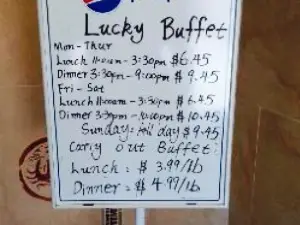 Lucky Buffet
Mon - Thur
Lunch 11:00am - 3:30pm $6.45
Dinner 3:30pm - 9:00pm $9.45
Fri - Sat
Lunch 11:00am - 3:30pm $6.45
Dinner 3:30pm - 10:00pm $10.45
Sunday: All day $9.45
Carry Out Buffet:
Lunch: $3.99/lb
Dinner = $4.99/lb